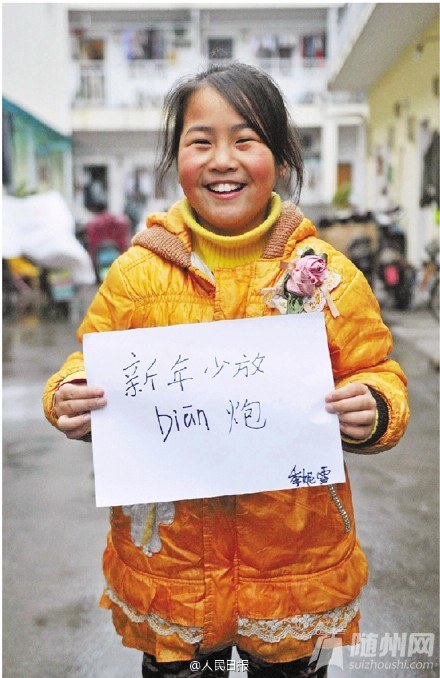 新年少放
biān 炮
季妮雪
@人民日报
随州网
suizhoushi.com